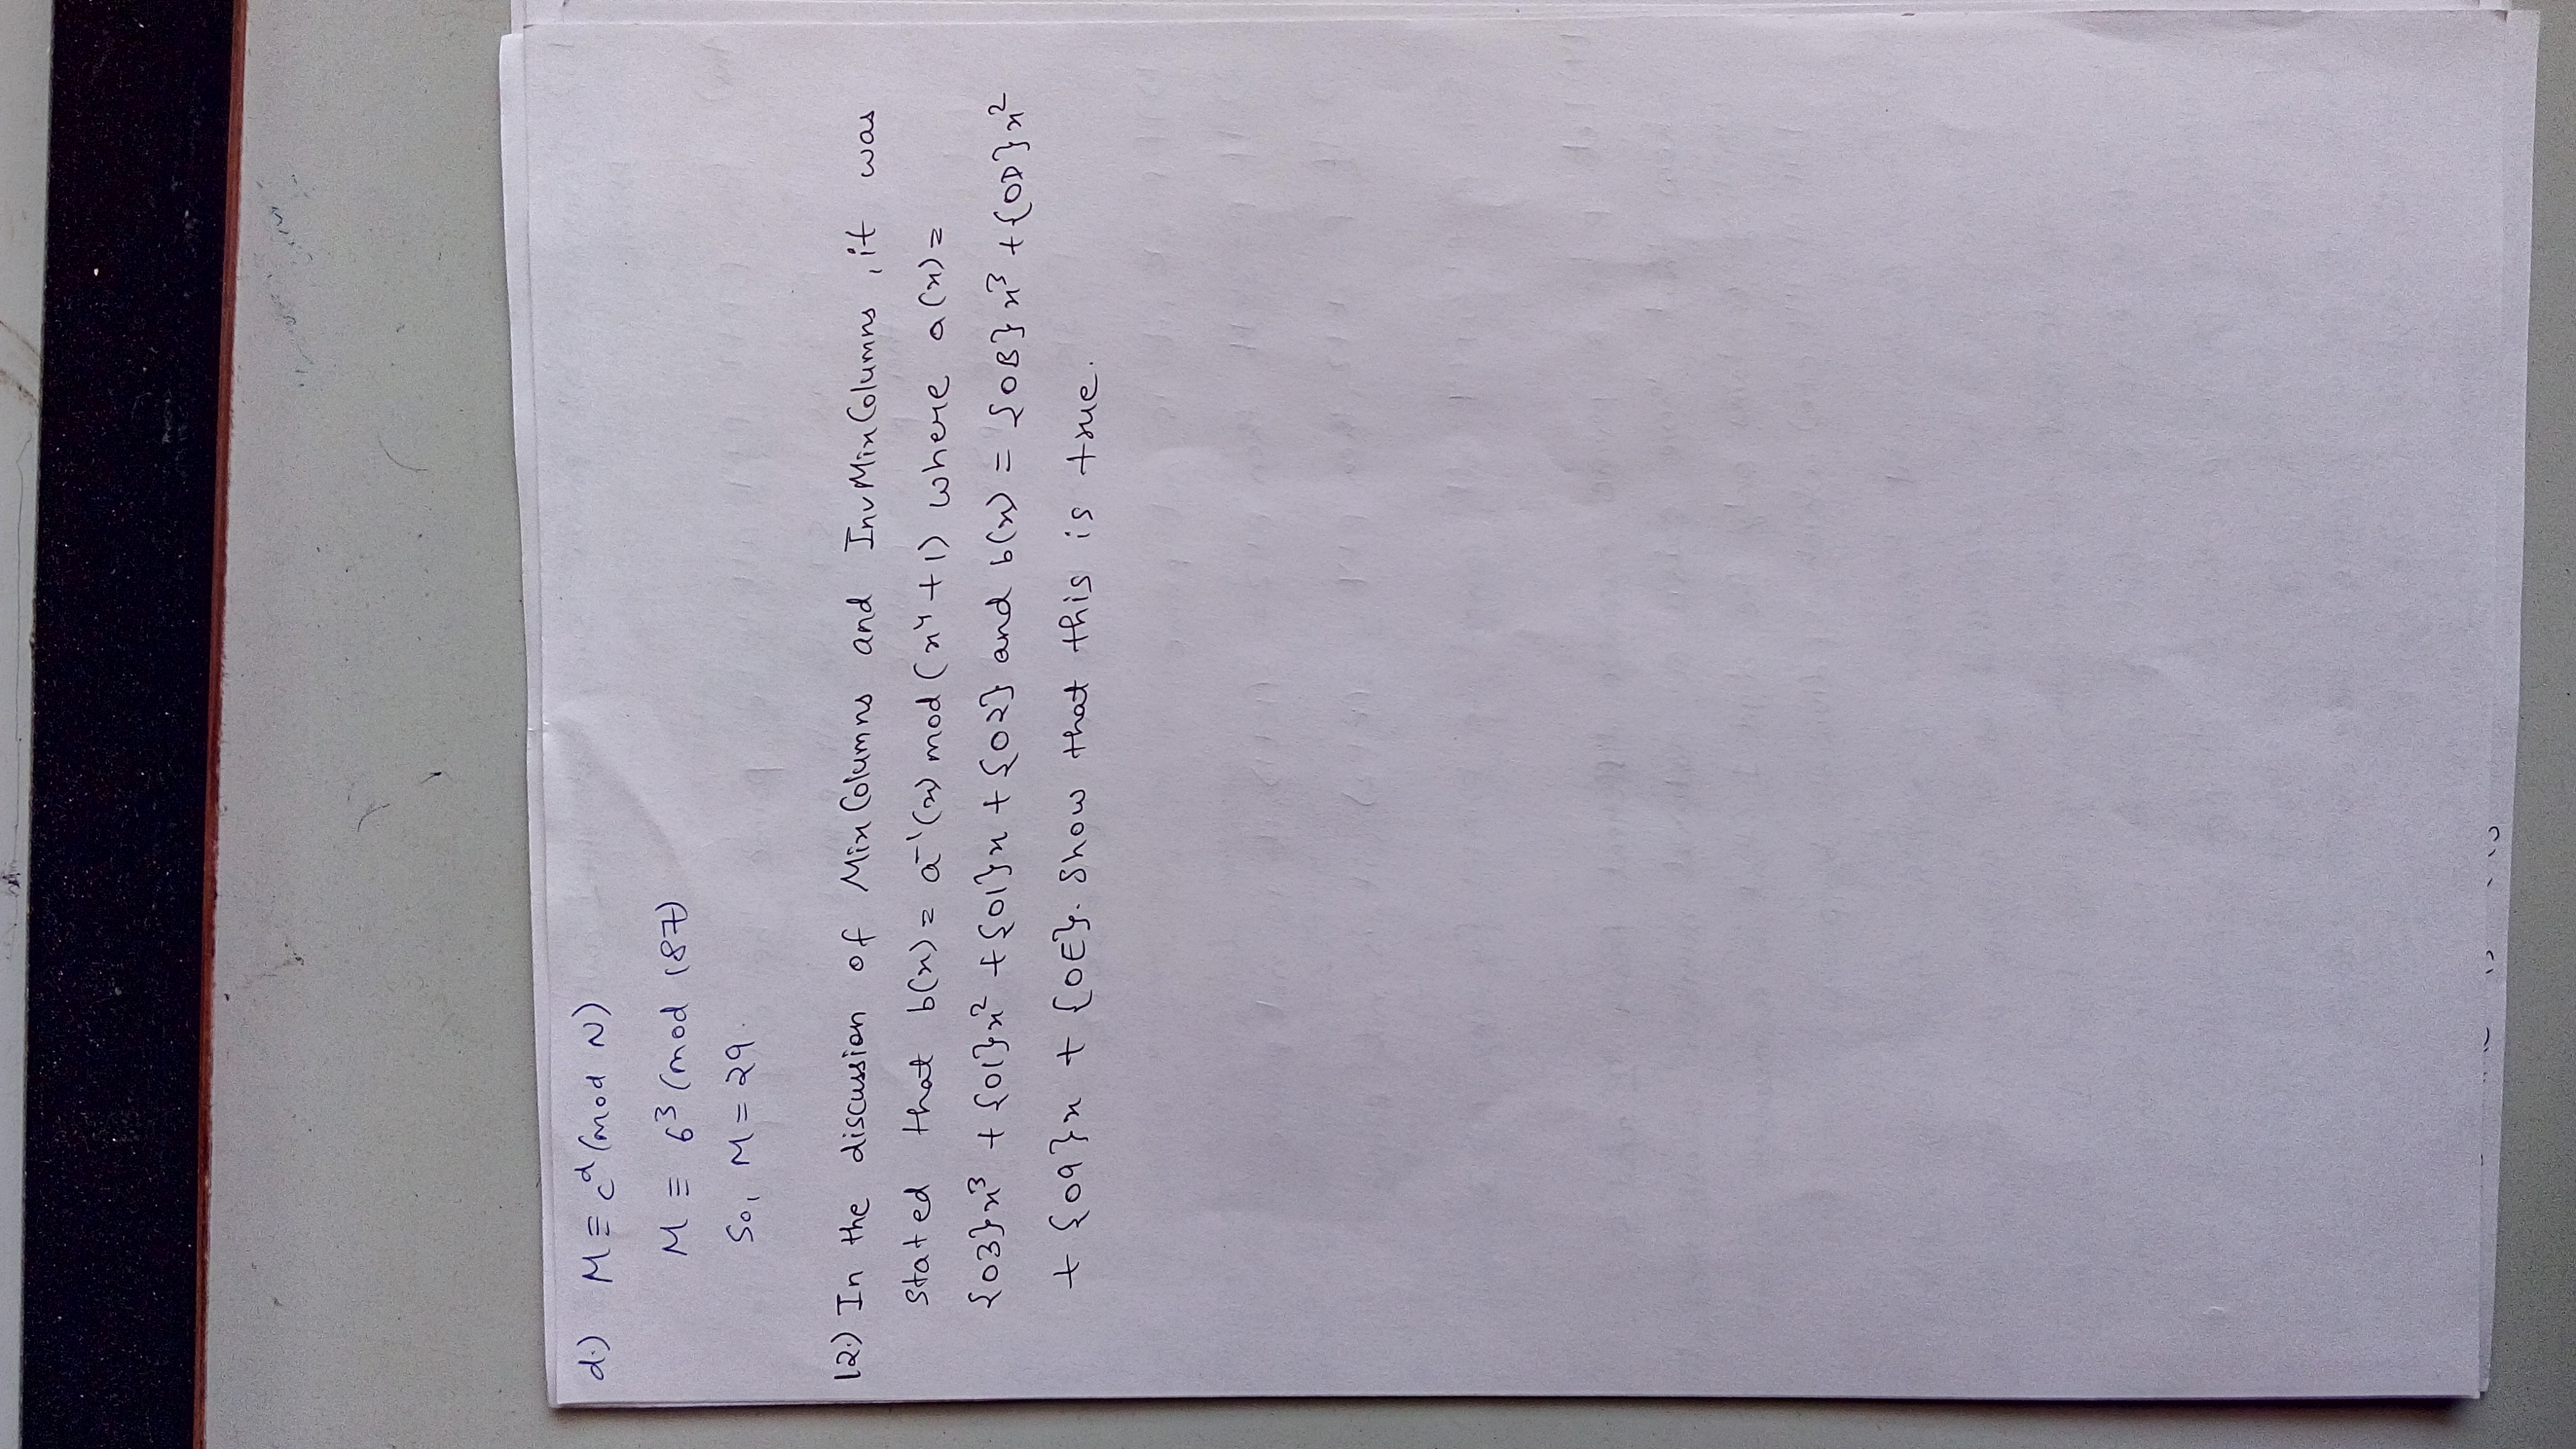 d.) M ≡ c^d (mod N)
M ≡ 6^3 (mod 187)
So, M = 29.
12.) In the discussion of MixColumns and InvMixColumns, it was
stated that b(x) = a^-1(x) mod (x^4 + 1) where a(x) =
{03}x^3 + {01}x^2 + {01}x + {02} and b(x) = {0B}x^3 + {0D}x^2
+ {09}x + {0E}. Show that this is true.